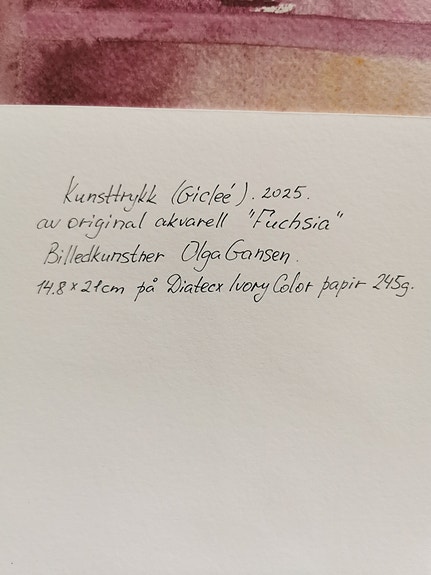 Kunsttrykk (Gicleé). 2025.
av original akvarell "Fuchsia"
Billedkunstner Olga Gansen.
14.8 x 21cm på Diatecx Ivory Color papir 245g.